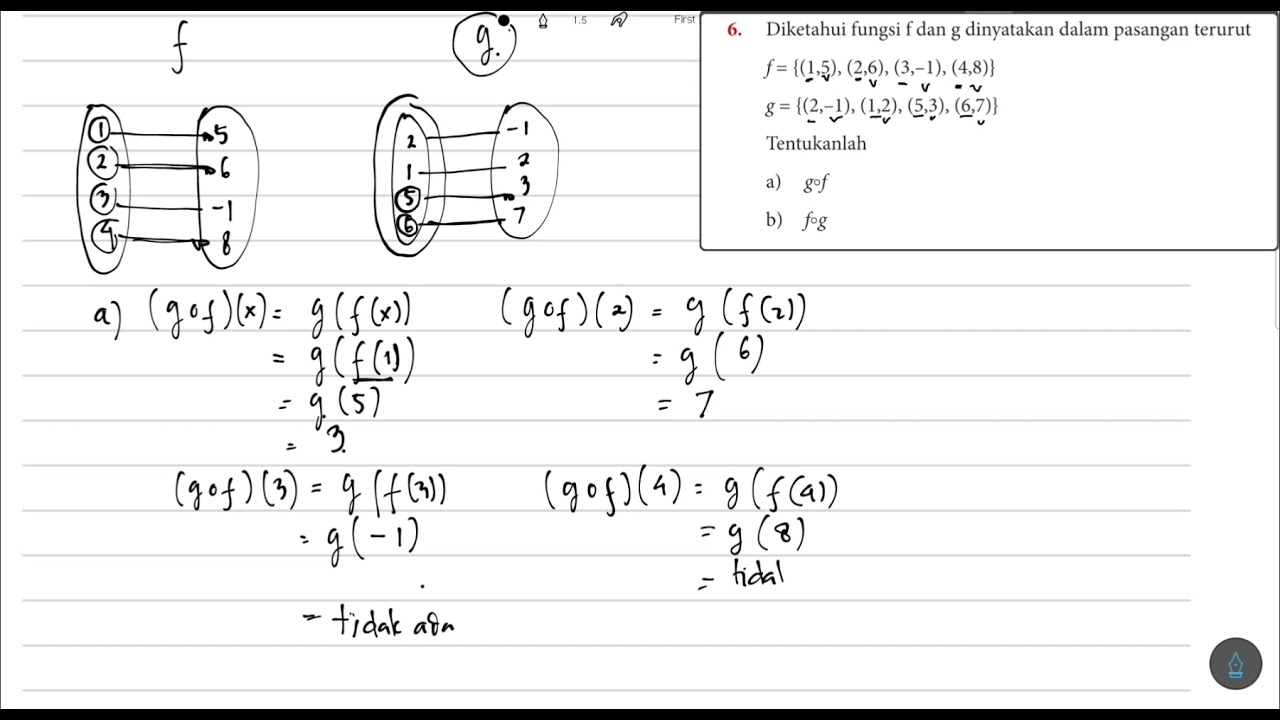 1.5 First
f
g.
1 5
2 6
3 -1
4 8
2 -1
1 2
5 3
6 7
6. Diketahui fungsi f dan g dinyatakan dalam pasangan terurut
f = {(1,5), (2,6), (3,–1), (4,8)}
g = {(2,–1), (1,2), (5,3), (6,7)}
Tentukanlah
a) g∘f
b) f∘g
a) (g o f)(x) = g(f(x))
= g(f(1))
= g(5)
= 3.
(g o f)(2) = g(f(2))
= g(6)
= 7
(g o f)(3) = g(f(3))
= g(-1)
= tidak ada
(g o f)(4) = g(f(4))
= g(8)
= tidal